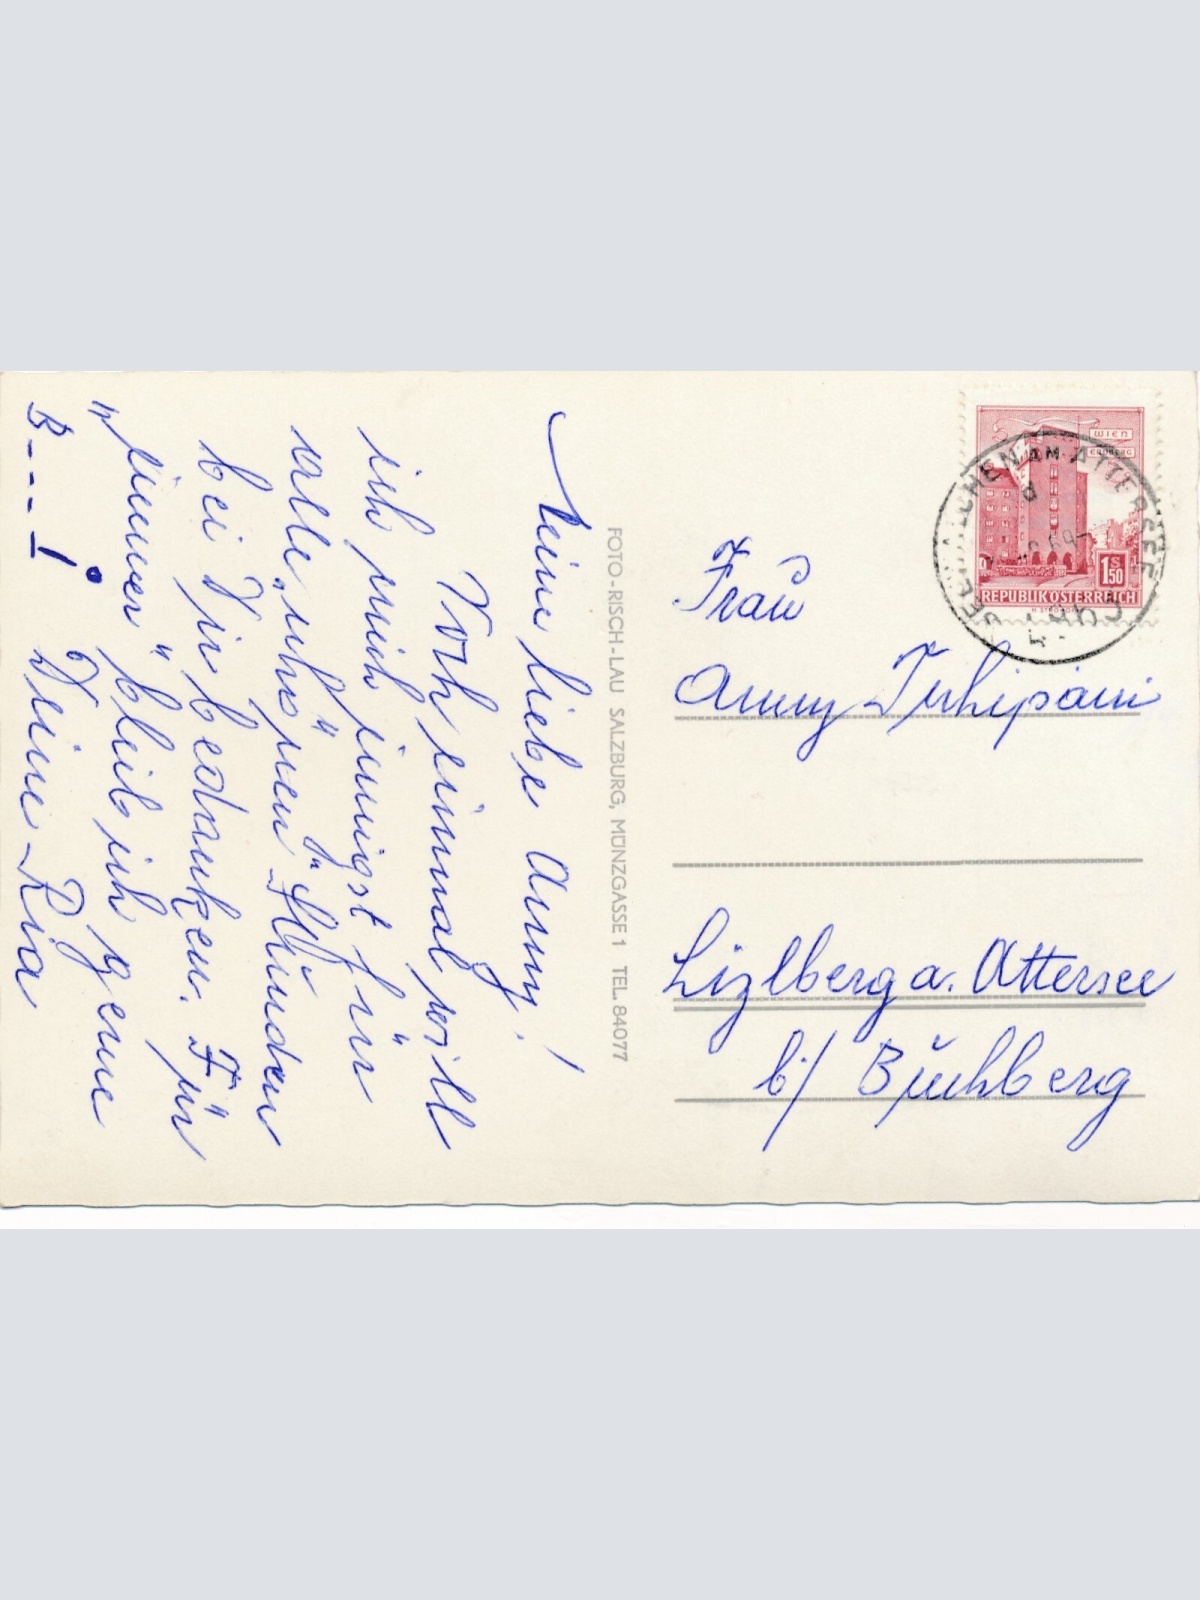 Meine liebe Anny!
Noch einmal will
ich mich innigst für
alle
bei Dir bedanken. Für
"immer" bleib ich gerne
B---! Deine Ria
FOTO-RISCH-LAU SALZBURG, MÜNZGASSE 1 TEL. 84077
WIEN
ERDBERG
1S50
REPUBLIK ÖSTERREICH
SEEWALCHEN AM ATTERSEE
Frau
Anny
Lizlberg a. Attersee
b/ Buchberg